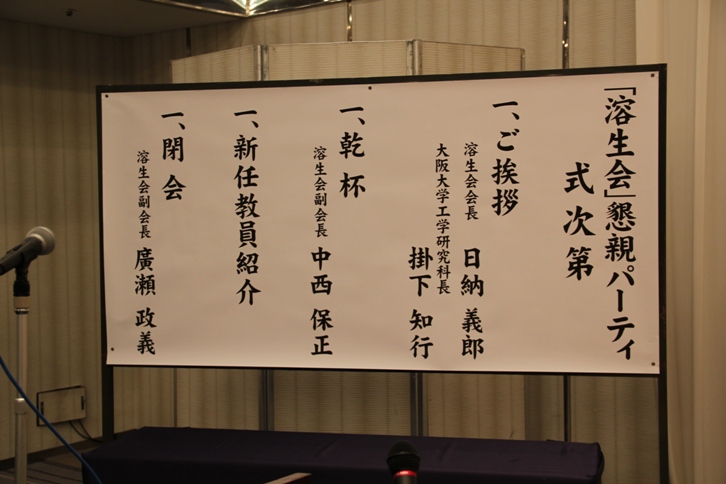 「溶生会」懇親パーティ
式次第
一、ご挨拶
溶生会会長 日納 義郎
大阪大学工学研究科長
掛下 知行
一、乾杯
溶生会副会長 中西 保正
一、新任教員紹介
一、閉会
溶生会副会長 廣瀬 政義